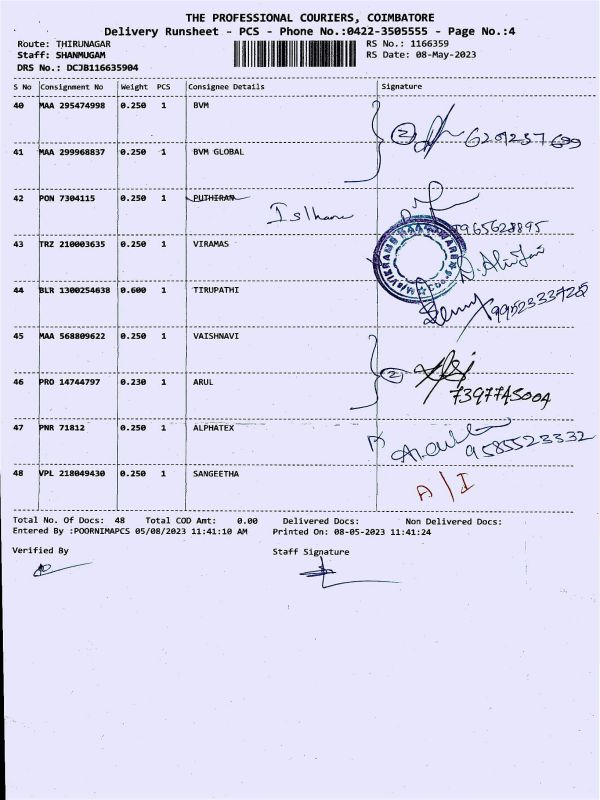 THE PROFESSIONAL COURIERS, COIMBATORE
Delivery Runsheet - PCS - Phone No.:0422-3505555 - Page No.:4
Route: THIRUNAGAR RS No.: 1166359
Staff: SHANMUGAM RS Date: 08-May-2023
DRS No.: DCJB116635904
S No Consignment No Weight PCS Consignee Details Signature
40 MAA 295474998 0.250 1 BVM
2
41 MAA 299968837 0.250 1 BVM GLOBAL
42 PON 7304115 0.250 1 PUTHIRAN
43 TRZ 210003635 0.250 1 VIRAMAS
44 BLR 1300254638 0.600 1 TIRUPATHI
45 MAA 568809622 0.250 1 VAISHNAVI
46 PRO 14744797 0.230 1 ARUL
2
7397745004
47 PNR 71812 0.250 1 ALPHATEX
9585523332
48 VPL 218049430 0.250 1 SANGEETHA
A/I
Total No. Of Docs: 48 Total COD Amt: 0.00 Delivered Docs: Non Delivered Docs:
Entered By :POORNIMAPCS 05/08/2023 11:41:10 AM Printed On: 08-05-2023 11:41:24
Verified By Staff Signature